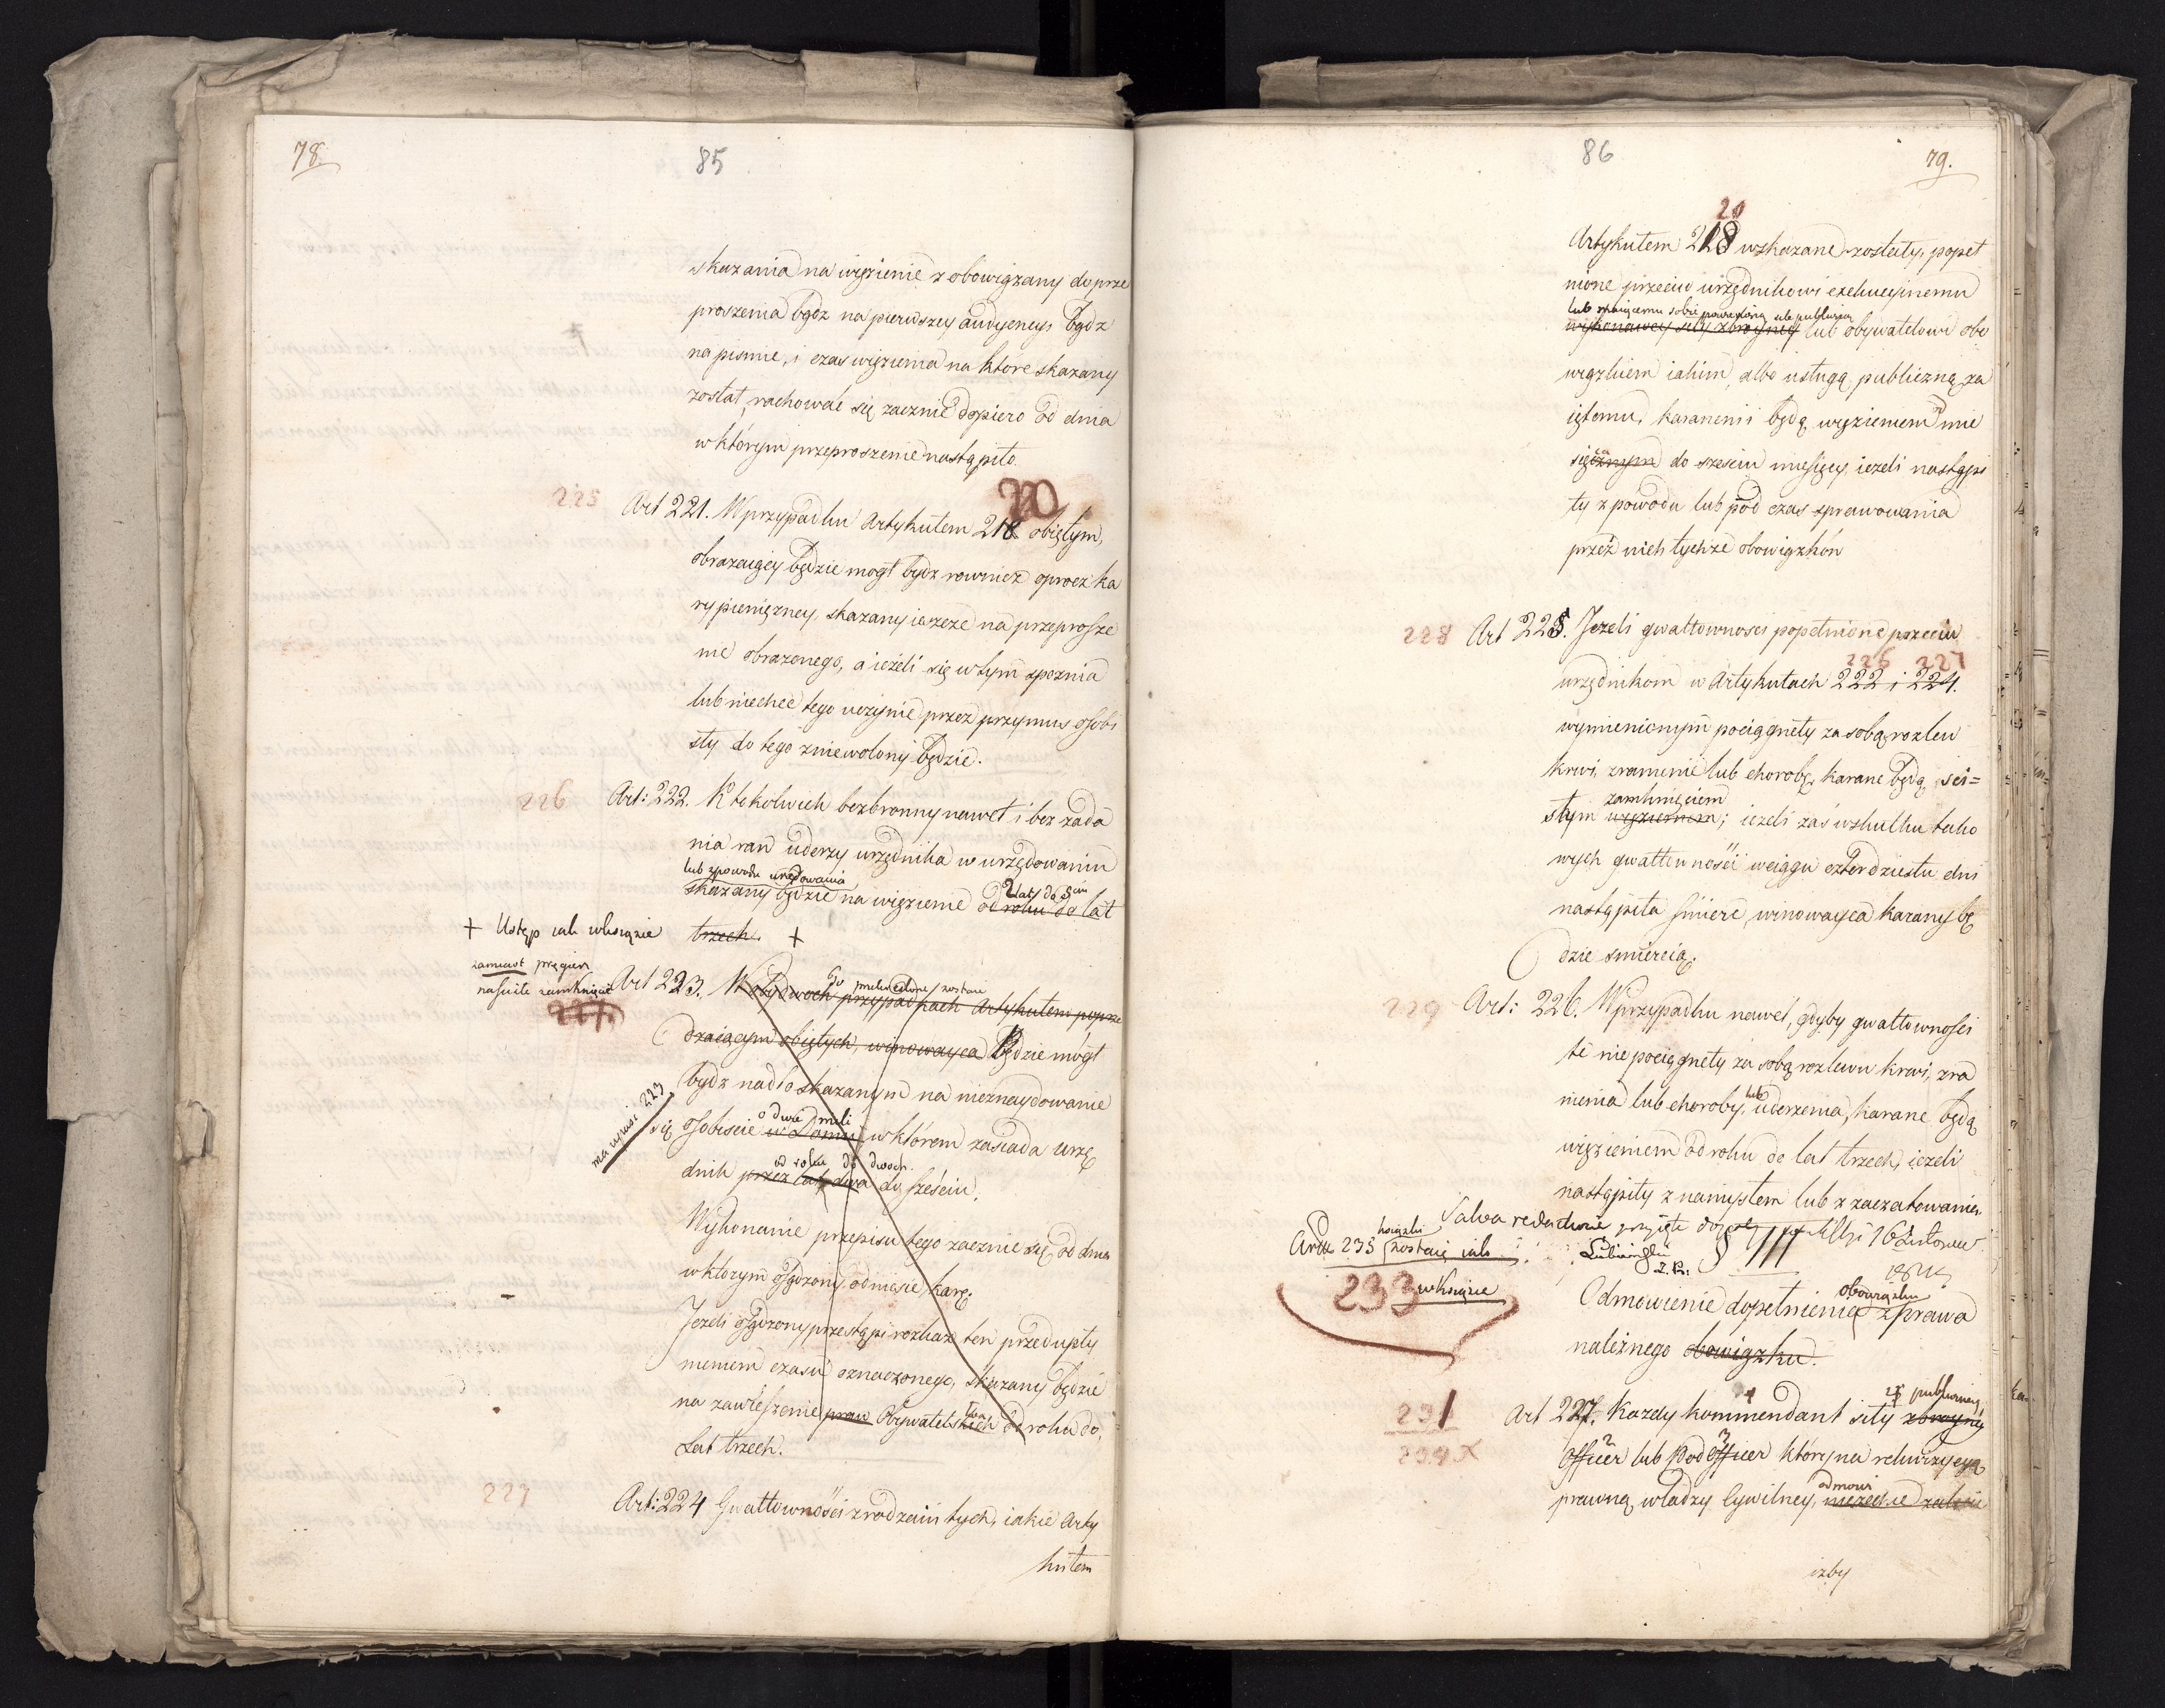 78.
85
skazania na więzienie z obowiązany do prze
proszenia bądz na pierwszey audyencyi bądz
na pismie, i czas więzienia na ktore skazany
został, rachować się zacznie dopiero od dnia
w którym przeproszenie nastąpiło.
225
Art 221. W przypadku Artykułem 218 obiętym,
220
obrażaiący będzie mogł bydz rownież oprocz ka
ry pienięzney, skazany ieszcze na przeprosze
nie obrażonego, a ieżeli się w tym spoznia
lub niechce tego uczynić przez przymus osobi
sty do tego zniewolony będzie.
226
Art: 222. Ktokolwiek bezbronny nawet i bez zada
nia ran uderzy urzędnika w urzędowaniu
lub z powodu urzędowania
skazany będzie na więzienie od roku do lat
2 lat do 5ciu
+ Ustęp iak w księdze
trzech. +
zamiast pręgierz
na ścisłe zamknięcie
227.
Art 223. W obydwoch przypadkach Artykułem poprze
dzaiącym obiętych, winowayca Będzie mógł
bydz nadto skazanym na nieznaydowanie
ma wyiść 223
o dwie mili
się osobiście w Domu, w którem zasiada urzę
od roku do dwoch.
dnik przez lat dwa do sześciu.
Wykonanie przepisu tego zacznie się, od dnia
w którym osądzony odniesie karę.
Jeżeli osądzony przestąpi rozkaz ten przed upły
nieniem czasu oznaczonego, skazany będzie
na zawieszenie praw Obywatelskich od roku do
Lat trzech.
227
Art: 224 Gwałtowności z rodzaiu tych, iakie Arty
kułem
86
79.
20
Artykułem 218 wskazane zostały, popeł
nione przeciw urzędnikowi exekucyinemu
lub maiącemu sobie powierzoną siłę publiczną
wykonawcy siły zbroyney lub obywatelowi obo
wiązkiem iakim, albo usługą publiczną za
iętemu, karanemi będą więzieniem mie
sięcznym do sześciu miesięcy, ieżeli nastąpi
ły z powodu lub pod czas sprawowania
przez nich tychże obowiązków
228
Art 225. Jeżeli gwałtowności popełnione przeciw
226 227
urzędnikom w Artykułach 222 i 224.
wymienionym pociągnęły za sobą rozlew
krwi, zranienie lub chorobę, karane będą, ści=
zamknięciem
słym więzieniem; ieżeli zaś w skutku tako
wych gwałtowności w ciągu czterdziestu dni
nastąpiła śmierć, winowayca karany bę
dzie śmiercią.
229
Art: 226. W przypadku nawet, gdyby gwałtowności
te nie pociągnęły za sobą rozlewu krwi, zra
lub
nienia lub choroby, uderzenia, karane będą
więzieniem od roku do lat trzech, ieżeli
nastąpiły z namysłem lub z zaczatowania.
Salva redactione przyięte
16
Art 235 zostaie iak
książki
w księdze
233
§ III
Odmowienie dopełnienia z prawa
obowiązku
należnego obowiązku.
231
234 X
Art 227. Każdy kommendant siły zbroyney
publiczney,
Officer lub Pod officer który na rekwizycyą
odmowi
prawną władzy Cywilney, niezechce zadosić
izby